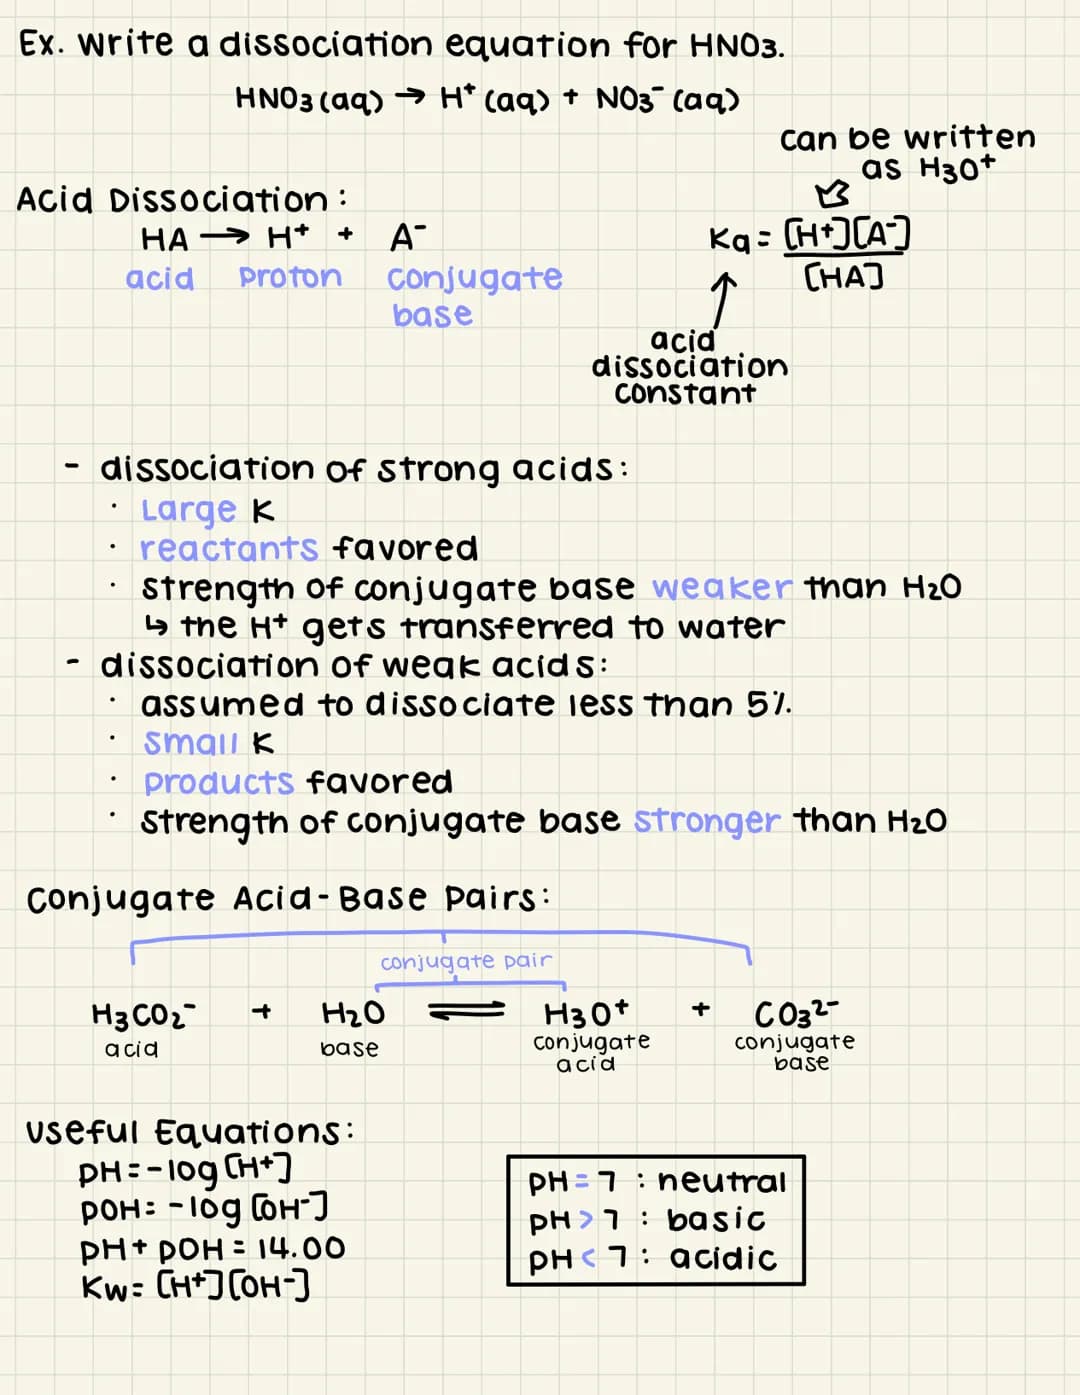 Ex. Write a dissociation equation for HNO3.
HNO3 (aq) → H⁺ (aq) + NO3⁻ (aq)
can be written
as H3O⁺
Acid Dissociation:
HA → H⁺ + A⁻
Ka = [H⁺][A⁻]
[HA]
acid proton conjugate
base
acid
dissociation
constant
- dissociation of strong acids:
· Large K
· reactants favored
· strength of conjugate base weaker than H2O
↳ the H⁺ gets transferred to water
- dissociation of weak acids:
· assumed to dissociate less than 5%.
· small K
· products favored
· strength of conjugate base stronger than H2O
Conjugate Acid-Base Pairs:
conjugate pair
H3CO2⁻ + H2O ⇌ H3O⁺ + CO3²⁻
acid base conjugate conjugate
acid base
Useful Equations:
pH = -log [H⁺]
pOH = -log [OH⁻]
pH + pOH = 14.00
Kw = [H⁺][OH⁻]
pH = 7 : neutral
pH > 7 : basic
pH < 7 : acidic